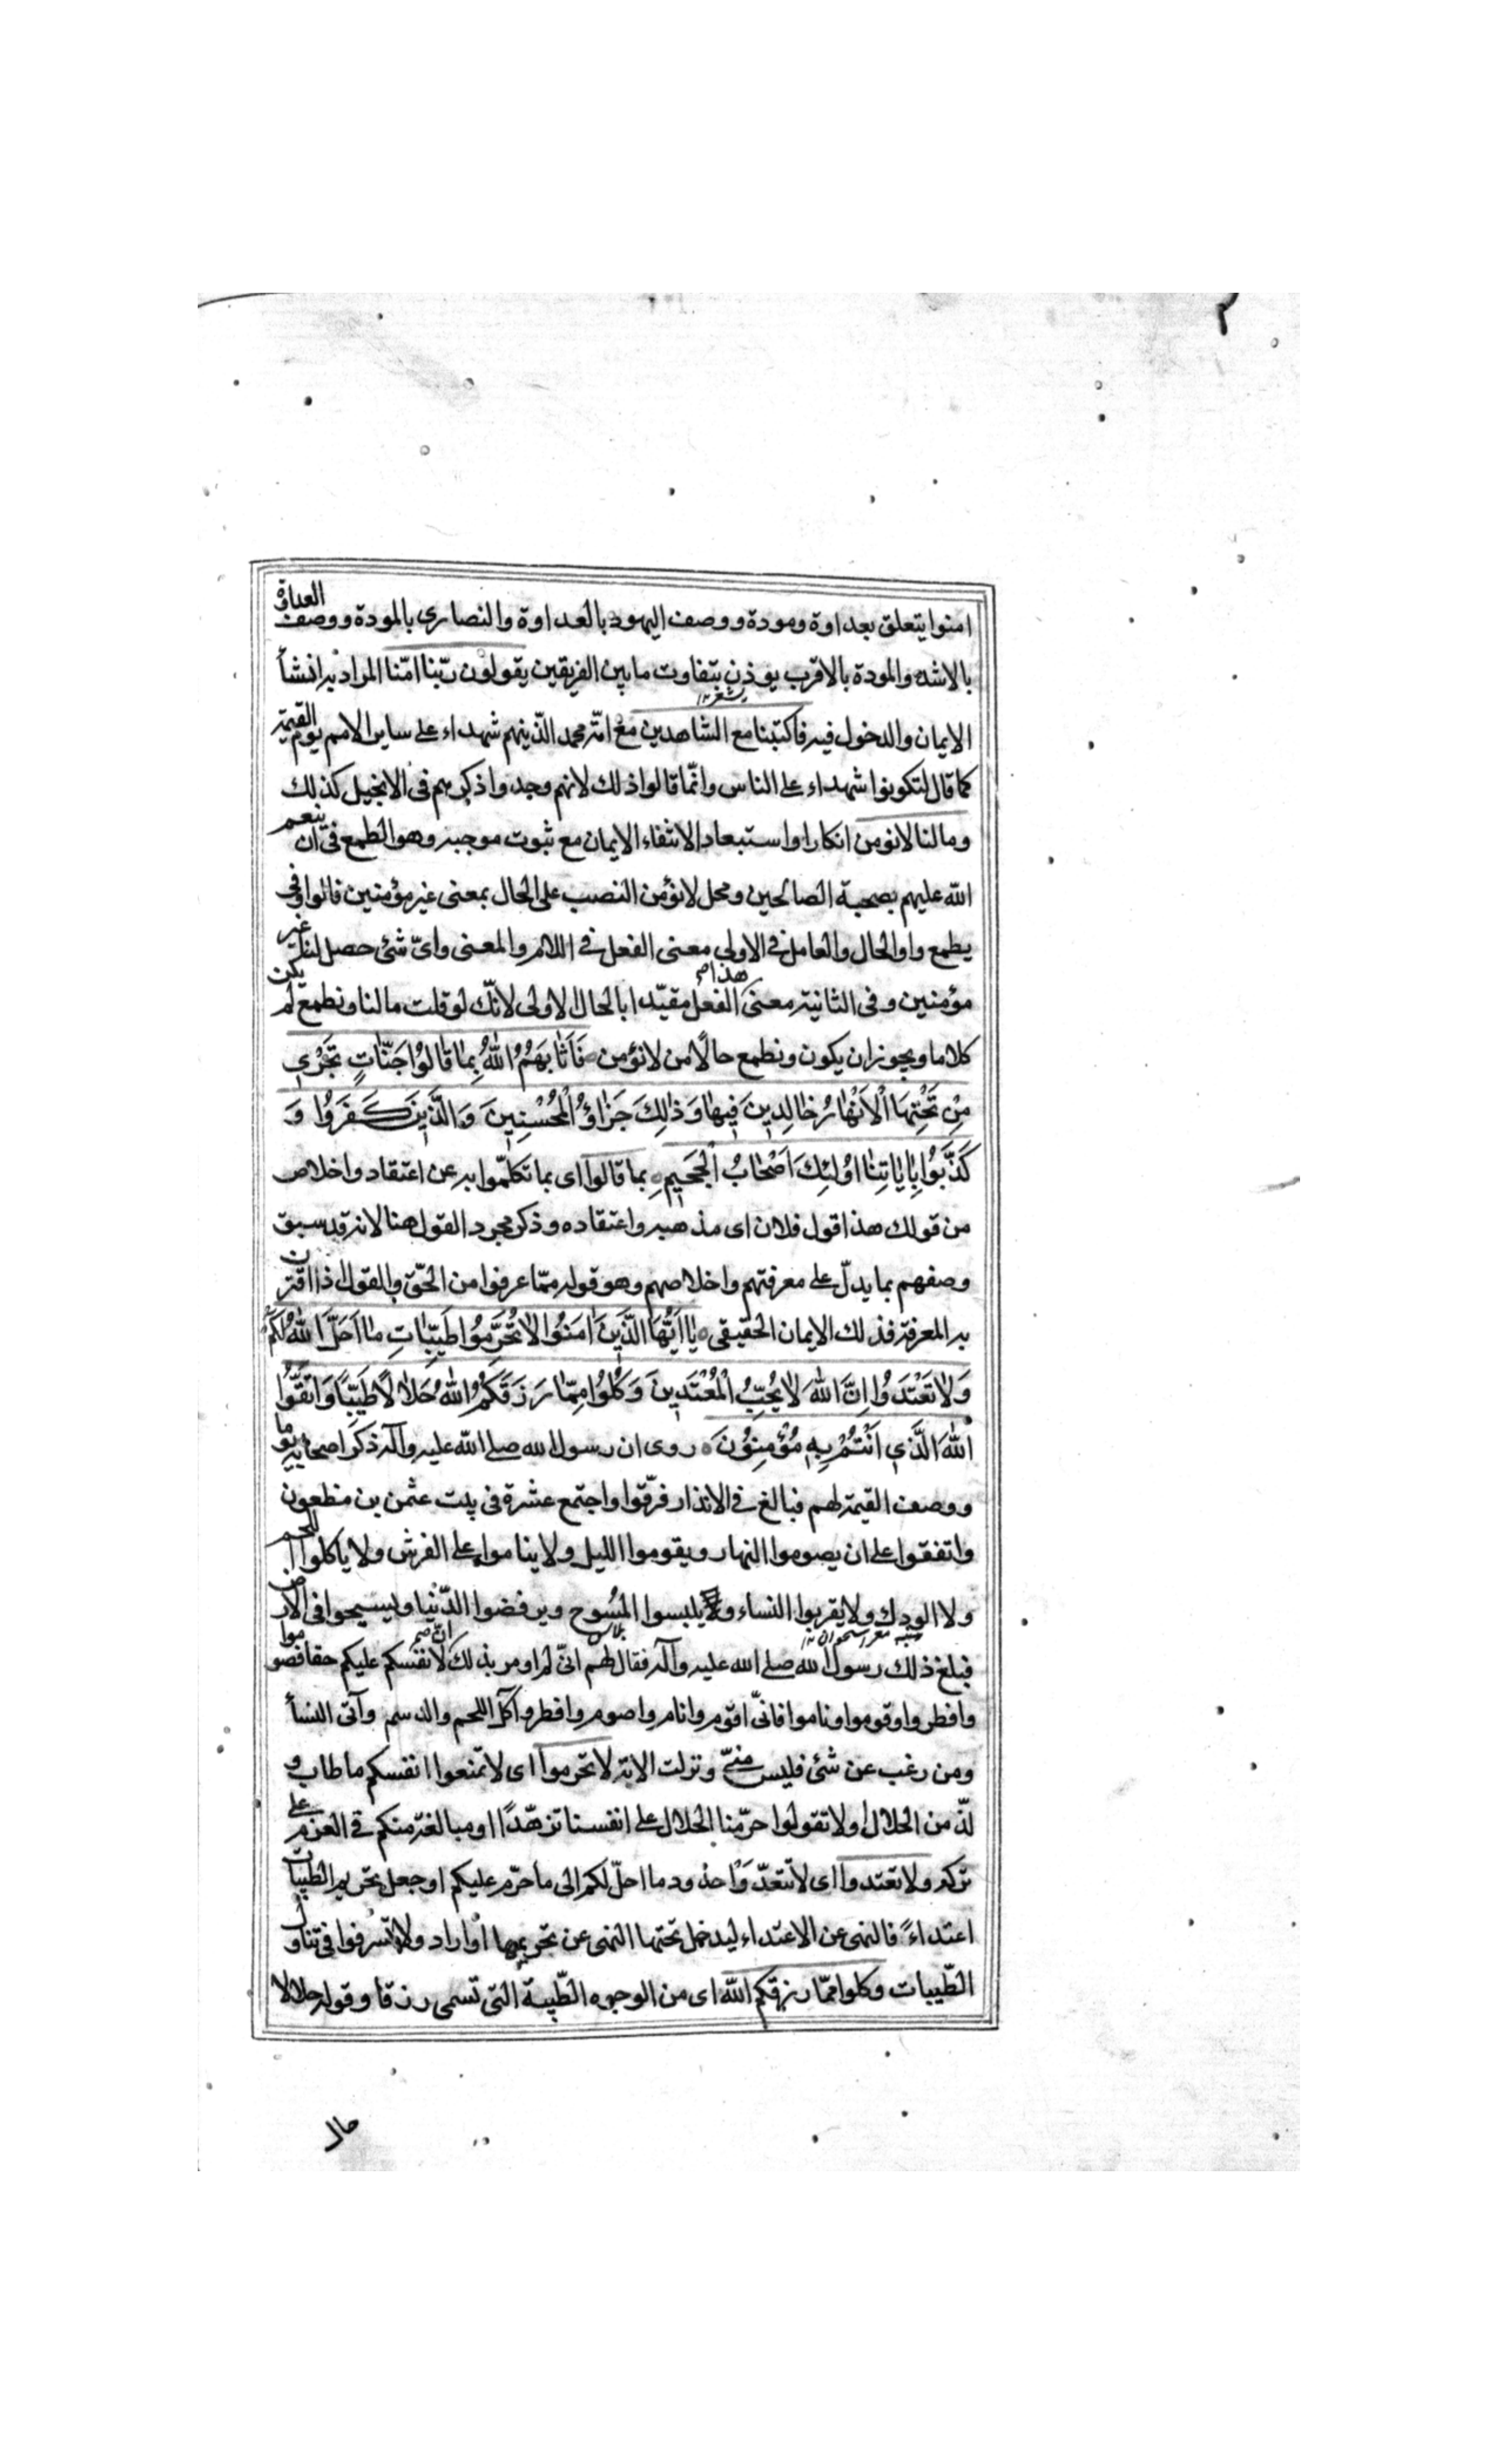 امنوا يتعلق بعداوة ومودة ووصف اليهود بالعداوة والنصارى بالمودة ووصف العداوة
بالاشد والمودة بالاقرب يوذن بتفاوت ما بين الفريقين يقولون ربّنا امّنا المراد به انشأ
الايمان والدخول فيه فاكتبنا مع الشاهدين مع امّة محمد الّذينهم شهداء على ساير الامم يوم القيمة
كما قال لتكونوا شهداء على الناس وانّما قالوا ذلك لانهم وجدوا ذكرهم فى الانجيل كذلك
ومالنا لانومن انكار او استبعاد الانتفاء الايمان مع ثبوت موجبه وهو الطمع فى ان ينعم
الله عليهم بصحبة الصالحين ومحل لانؤمن النصب على الحال بمعنى غير مؤمنين قالوا وفى
يطمع واو الحال والعامل فى الاولى معنى الفعل فى اللام والمعنى واىّ شئ حصل لنا غير
مؤمنين وفى الثانية معنى هذا الفعل مقيّدا بالحال الاولى لانّك لو قلت مالنا ونطمع لم يكن
كلاما ويجوز ان يكون ونطمع حالًا من لانؤمن فَاَثَابَهُمُ اللهُ بِمَا قَالُوا جَنَّاتٍ تَجْرِي
مِنْ تَحْتِهَا الْاَنْهَارُ خَالِدِينَ فِيهَا وَذَلِكَ جَزَاؤُ الْمُحْسِنِينَ وَالَّذِينَ كَفَرُوا وَ
كَذَّبُوا بِاٰيَاتِنَا اُولٰئِكَ اَصْحَابُ الْجَحِيمِ بما قالوا اى بما تكلّموا به عن اعتقاد واخلاص
من قولك هذا قول فلان اى مذهبه واعتقاده وذكر مجرد القول هنا لانه قد سبق
وصفهم بما يدلّ على معرفتهم واخلاصهم وهو قوله ممّا عرفوا من الحقّ والقول اذا اقترن
به المعرفة فذلك الايمان الحقيقى يَا اَيُّهَا الَّذِينَ اٰمَنُوا لَا تُحَرِّمُوا طَيِّبَاتِ مَا اَحَلَّ اللهُ لَكُمْ
وَلَا تَعْتَدُوا اِنَّ اللهَ لَا يُحِبُّ الْمُعْتَدِينَ وَكُلُوا مِمَّا رَزَقَكُمُ اللهُ حَلَالًا طَيِّبًا وَاتَّقُوا
اللهَ الَّذِي اَنْتُمْ بِهِ مُؤْمِنُونَ روى ان رسول الله صلى الله عليه وآله ذكر اصحابه يوما
ووصف القيمة لهم فبالغ فى الانذار فرّقوا واجتمع عشرة فى بيت عثمن بن مظعون
واتفقوا على ان يصوموا النهار ويقوموا الليل ولا يناموا على الفرش ولا ياكلوا اللحم
ولا الودك ولا يقربوا النساء ويلبسوا المُسُوح ويرفضوا الدّنيا ويسيحوا فى الارض
فبلغ ذلك رسول الله صلى الله عليه وآله فقال لهم انّى لم اومر بذلك ان لانفسكم عليكم حقا فصوموا
وافطروا وقوموا وناموا فانّى اقوم وانام واصوم وافطر وآكل اللحم والدسم وآتى النسأ
ومن رغب عن شئ فليس منّى ونزلت الاية لا تحرموا اى لاتمنعوا انفسكم ما طاب و
لذّ من الحلال او لا تقولوا حرّمنا الحلال على انفسنا تزهّدًا او مبالغة منكم فى العزم على
تركه ولا تعتدوا اى لاتتعدّوا حدود ما احلّ لكم الى ما حرّم عليكم او جعل تحريم الطيبات
اعتداءً فالنهى عن الاعتداء ليدخل تحتها النهى عن تحريمها او اراد ولا تسرفوا فى تناول
الطّيبات وكلوا ممّا رزقكم الله اى من الوجوه الطّيبة التى تسمى رزقا وقوله حلالا
حال